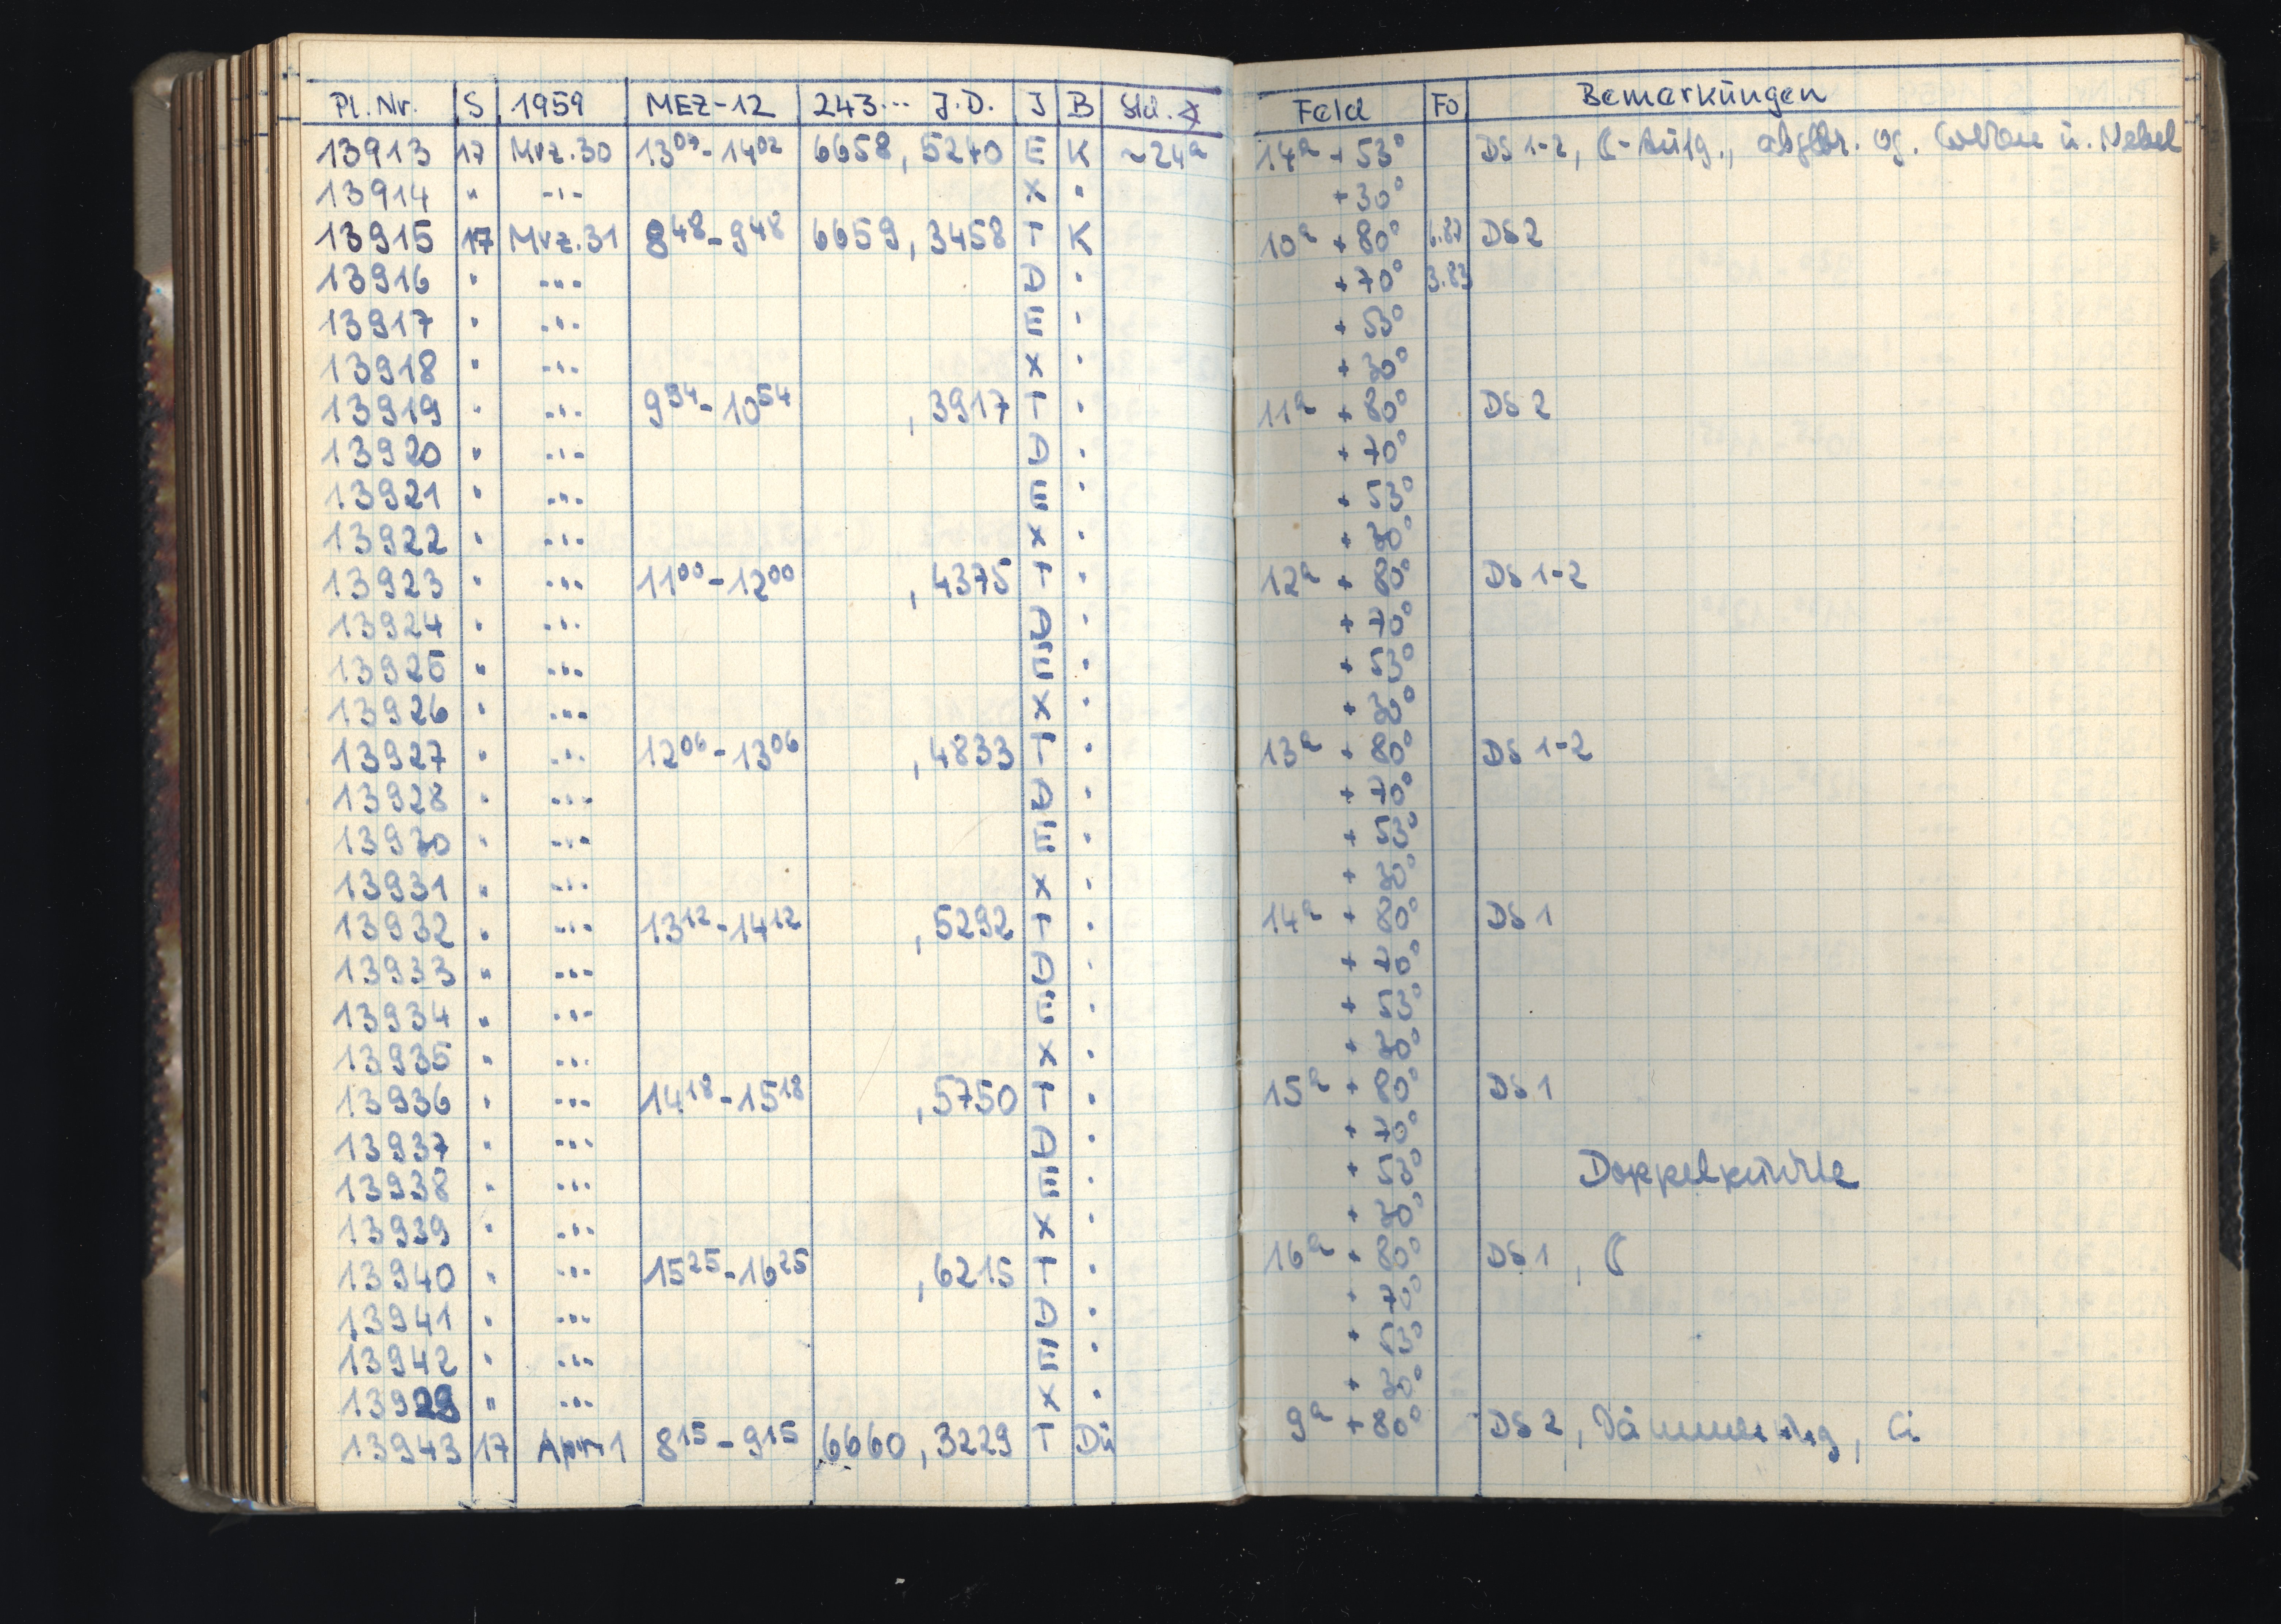 Pl. Nr. S 1959 MEZ-12 243... J.D. J B Std. ∡ Feld Fo Bemerkungen
13913 17 Mrz. 30 13⁰⁹-14⁰² 6658, 5240 E K ~24ᵃ 14ʰ + 53° DS 1-2, ☾-Aufg., abgebr. wg. Wolken u. Nebel
13914 " -"- X " + 30°
13915 17 Mrz. 31 8⁴⁸-9⁴⁸ 6659, 3458 T K 10ʰ + 80° DS 2
13916 " -"- D " + 70° 3.83
13917 " -"- E " + 53°
13918 " -"- X " + 30°
13919 " -"- 9⁵⁴-10⁵⁴ , 3917 T " 11ʰ + 80° DS 2
13920 " -"- D " + 70°
13921 " -"- E " + 53°
13922 " -"- X " + 30°
13923 " -"- 11⁰⁰-12⁰⁰ , 4375 T " 12ʰ + 80° DS 1-2
13924 " -"- D " + 70°
13925 " -"- E " + 53°
13926 " -"- X " + 30°
13927 " -"- 12⁰⁶-13⁰⁶ , 4833 T " 13ʰ + 80° DS 1-2
13928 " -"- D " + 70°
13930 " -"- E " + 53°
13931 " -"- X " + 30°
13932 " -"- 13¹²-14¹² , 5292 T " 14ʰ + 80° DS 1
13933 " -"- D " + 70°
13934 " -"- E " + 53°
13935 " -"- X " + 30°
13936 " -"- 14¹⁸-15¹⁸ , 5750 T " 15ʰ + 80° DS 1
13937 " -"- D " + 70°
13938 " -"- E " + 53° Doppelpunkte
13939 " -"- X " + 30°
13940 " -"- 15²⁵-16²⁵ , 6215 T " 16ʰ + 80° DS 1, ☾
13941 " -"- D " + 70°
13942 " -"- E " + 53°
13929 " -"- X " + 30°
13943 17 Apr. 1 8¹⁵-9¹⁵ 6660, 3229 T Dü 9ʰ + 80° DS 2, Dämmerung, Ci